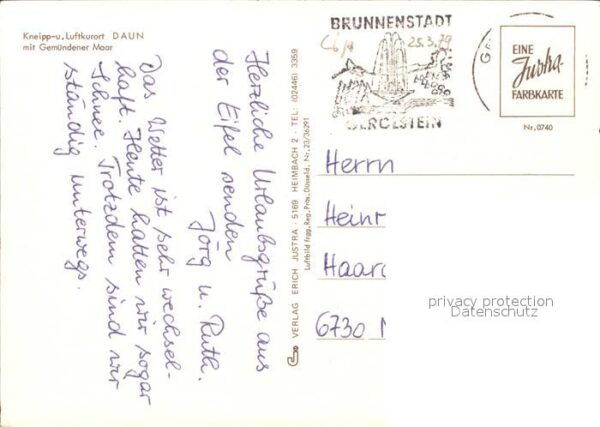 Kneipp-u. Luftkurort DAUN
mit Gemündener Maar
Herzliche Urlaubsgrüße aus
der Eifel senden
Jörg u. Ruth.
Das Wetter ist sehr wechsel-
haft. Heute hatten wir sogar
Schnee. Trotzdem sind wir
ständig unterwegs.
VERLAG ERICH JUSTRA · 5169 HEIMBACH 2 · TEL: (02446) 3359
Luftbild frgg. Reg. Präs. Düsseld. Nr. 23/36291
BRUNNENSTADT
GEROLSTEIN
25.3.79
EINE
Justra-
FARBKARTE
Nr. 0740
Herrn
Hein
Haar
6730
privacy protection
Datenschutz